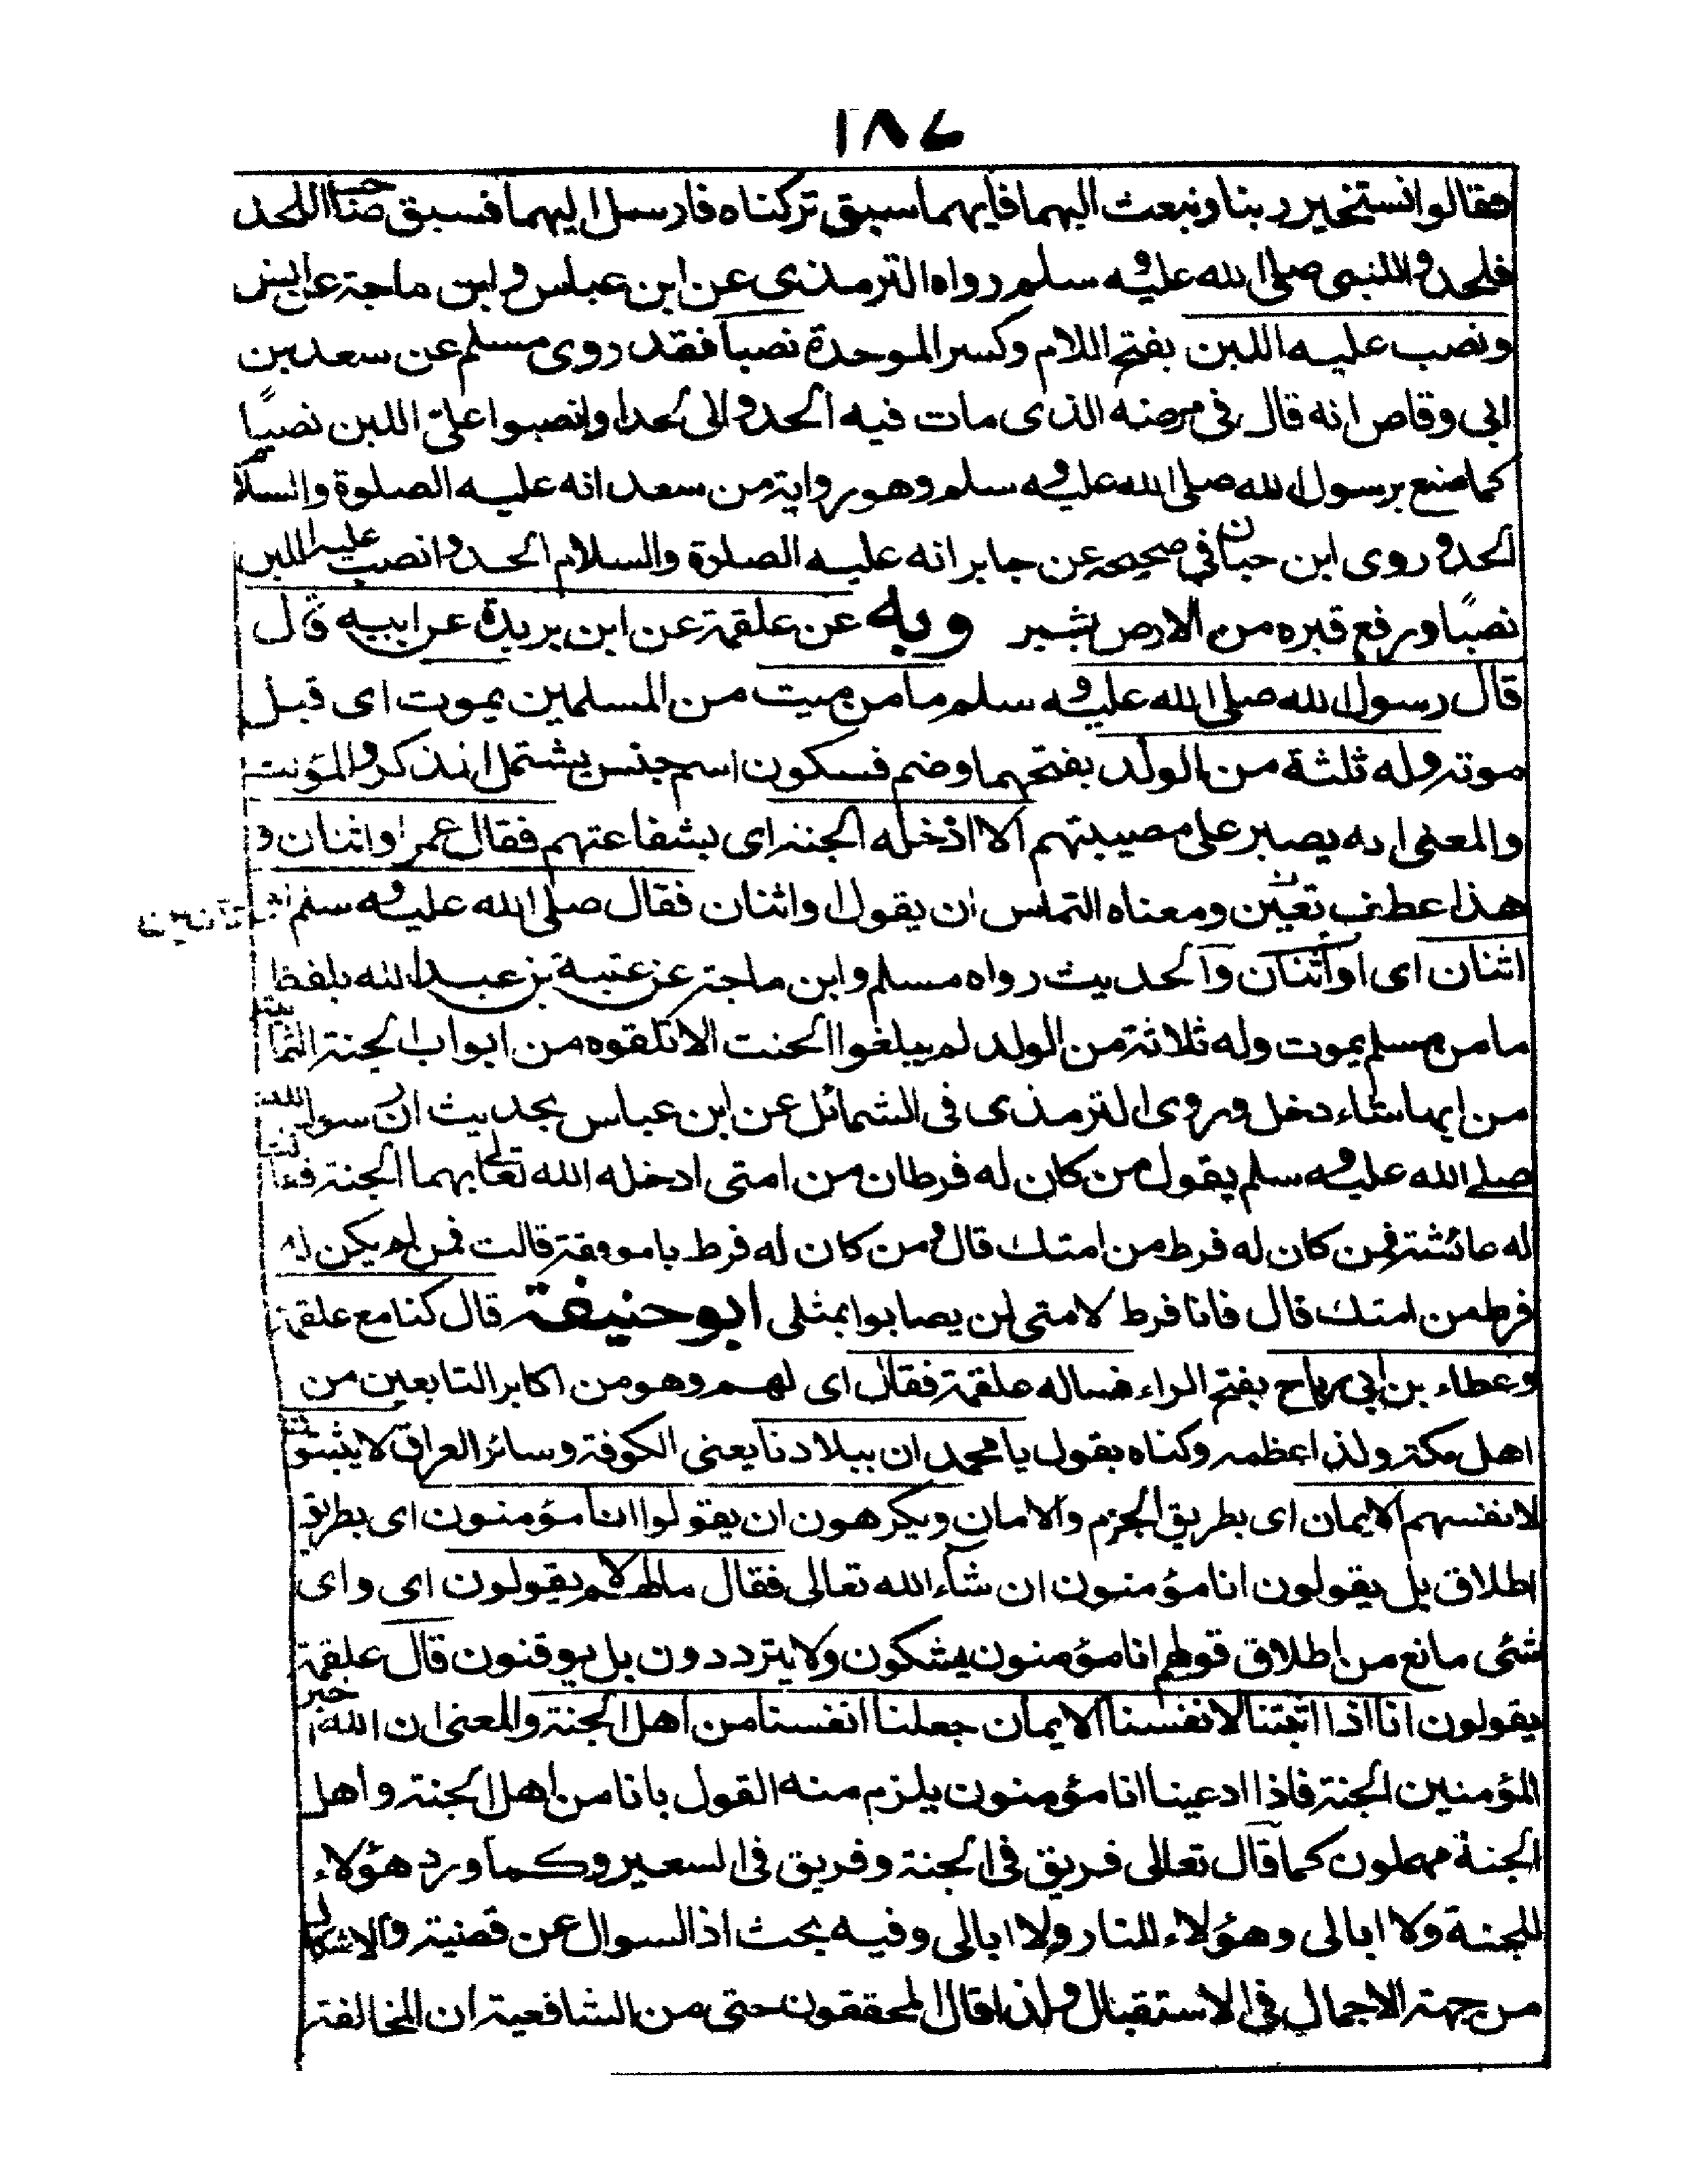 ١٨٤
فقالوا نستخير ربنا ونبعث اليهما فايهما سبق تركناه فارسل اليهما فسبق صاحب اللحد
فلحدوا للنبى صلى الله عليه وسلم رواه الترمذى عن ابن عباس وابن ماجة عن
ونصب عليه اللبن بفتح اللام وكسر الموحدة نصبا فقد روى مسلم عن سعد بن
ابى وقاص انه قال فى مرضه الذى مات فيه الحدوا لى لحدا وانصبوا على اللبن نصبًا
كما صنع برسول الله صلى الله عليه وسلم وهو رواية من سعد انه عليه الصلوة والسلام
الحد وروى ابن حبان فى صحيحه عن جابر انه عليه الصلوة والسلام الحد وانصب عليه اللبن
نصبًا ورفع قبره من الارض بشبر وبه عن علقمة عن ابن بريدة عن ابيه قال
قال رسول الله صلى الله عليه وسلم ما من ميت من المسلمين يموت اى قبل
موته وله ثلثة من الولد بفتحهما وضم فسكون اسم جنس يشتمل المذكر والمؤنث
والمعنى انه يصبر على مصيبتهم الا ادخله الجنة اى بشفاعتهم فقال عمر او اثنان و
هذا عطف تعيين ومعناه التماس ان يقول او اثنان فقال صلى الله عليه وسلم
اثنان اى او اثنان والحديث رواه مسلم وابن ماجة عن عتبة بن عبد الله بلفظ
ما من مسلم يموت وله ثلاثة من الولد لم يبلغوا الحنث الا تلقوه من ابواب الجنة الثمانية
من ايها شاء دخل وروى الترمذى فى الشمائل عن ابن عباس بحديث ان رسول الله
صلے الله عليه وسلم يقول من كان له فرطان من امتى ادخله الله تعالى بهما الجنة فقالت
له عائشة فمن كان له فرط من امتك قال ومن كان له فرط يا موفقة قالت فمن لم يكن له
فرط من امتك قال فانا فرط لامتى لن يصابوا بمثلى ابو حنيفة قال كنا مع علقمة
وعطاء بن ابى رباح بفتح الراء فساله علقمة فقال اى لهم وهو من اكابر التابعين من
اهل مكة ولذا عظمه وكناه بقول يا محمد ان ببلادنا يعنى الكوفة وسائر العراق لا يثبتون
لانفسهم الايمان اى بطريق الجزم والامان ويكرهون ان يقولوا انا مؤمنون اى بطريق
اطلاق بل يقولون انا مؤمنون ان شاء الله تعالى فقال ما لهم لا يقولون اى واى
شئى مانع من اطلاق قولهم انا مؤمنون يشكون ولا يترددون بل يوقنون قال علقمة
يقولون انا اذا اثبتنا لانفسنا الايمان جعلنا انفسنا من اهل الجنة والمعنى ان الله خبر
المؤمنين الجنة فاذا ادعينا انا مؤمنون يلزم منه القول بانا من اهل الجنة واهل
الجنة مهملون كما قال تعالى فريق فى الجنة وفريق فى السعير وكما ورد هؤلاء
للجنة ولا ابالى وهؤلاء للنار ولا ابالى وفيه بحث اذ السوال عن قضية والاشكال
من جهة الاجمال فى الاستقبال ولذا قال المحققون حتى من الشافعية ان المخالفة